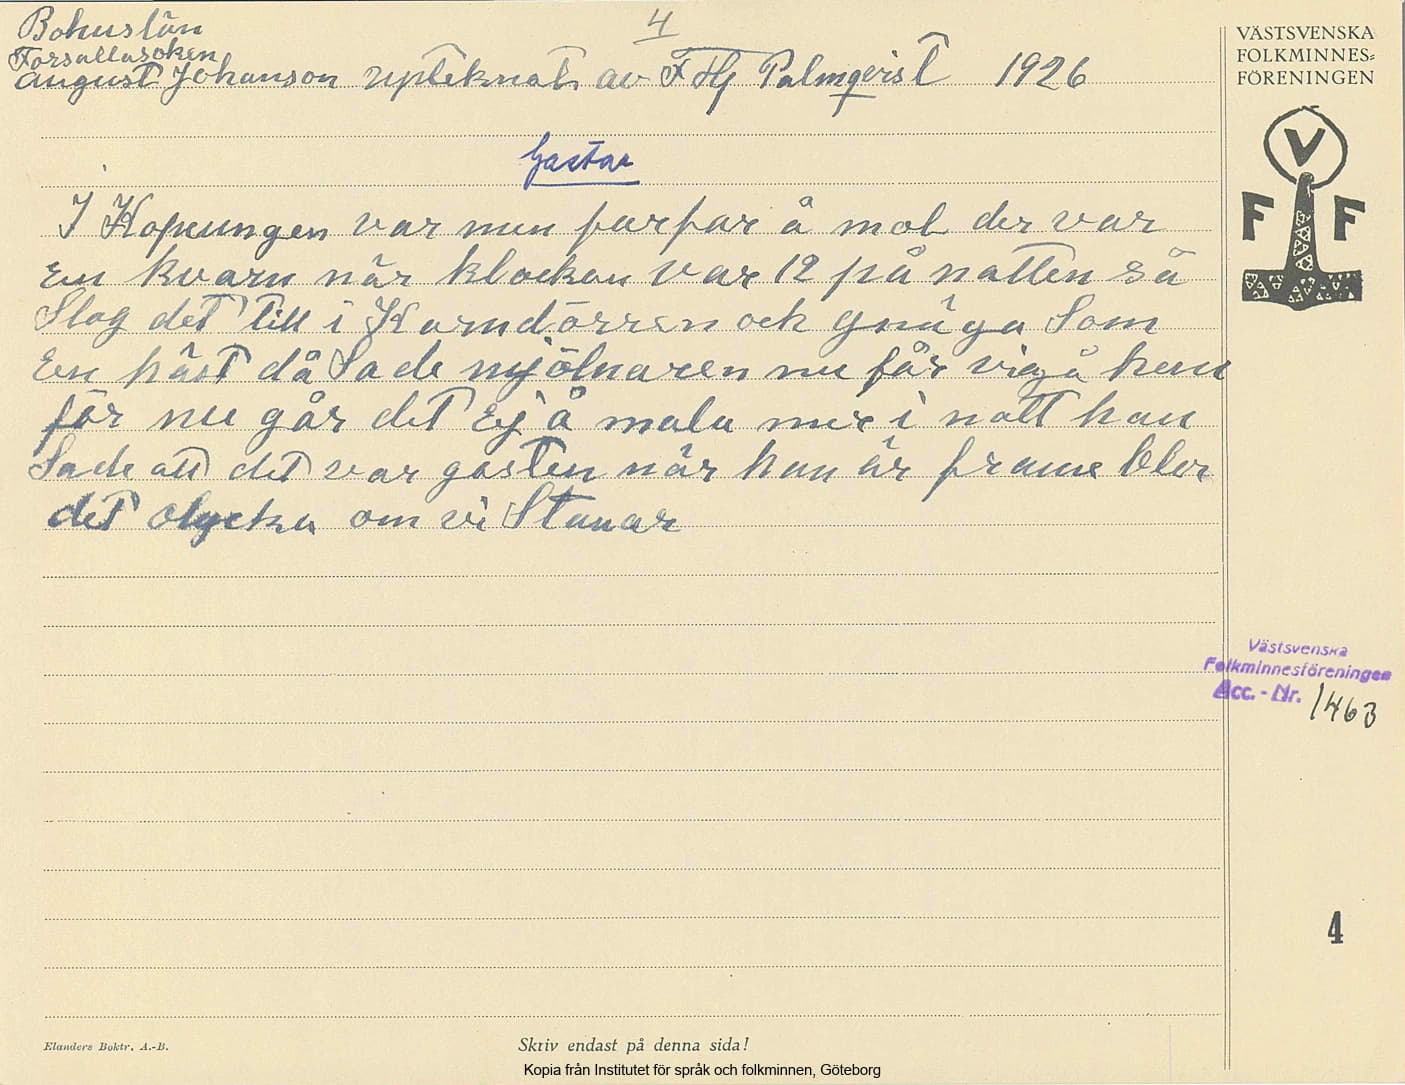 4
Bohuslän
Forsallasoken
August Johanson upteknat av F Hj Palmqvist 1926
Gastar
I Kopungen var min farfar å mol der var
En kvarn när klockan var 12 på natten så
Slog det till i Kvarndörren och gnäga Som
En häst då Sade mjölnaren nu får vi gå hem
för nu går det Ej å mala mer i natt han
Sade att det var gasten när han är frame blir
det olycka om vi Stanar
VÄSTSVENSKA
FOLKMINNES=
FÖRENINGEN
V
F F
Västsvenska
Folkminnesföreningen
Acc. - Nr. 1463
4
Elanders Boktr. A.-B.
Skriv endast på denna sida!
Kopia från Institutet för språk och folkminnen, Göteborg